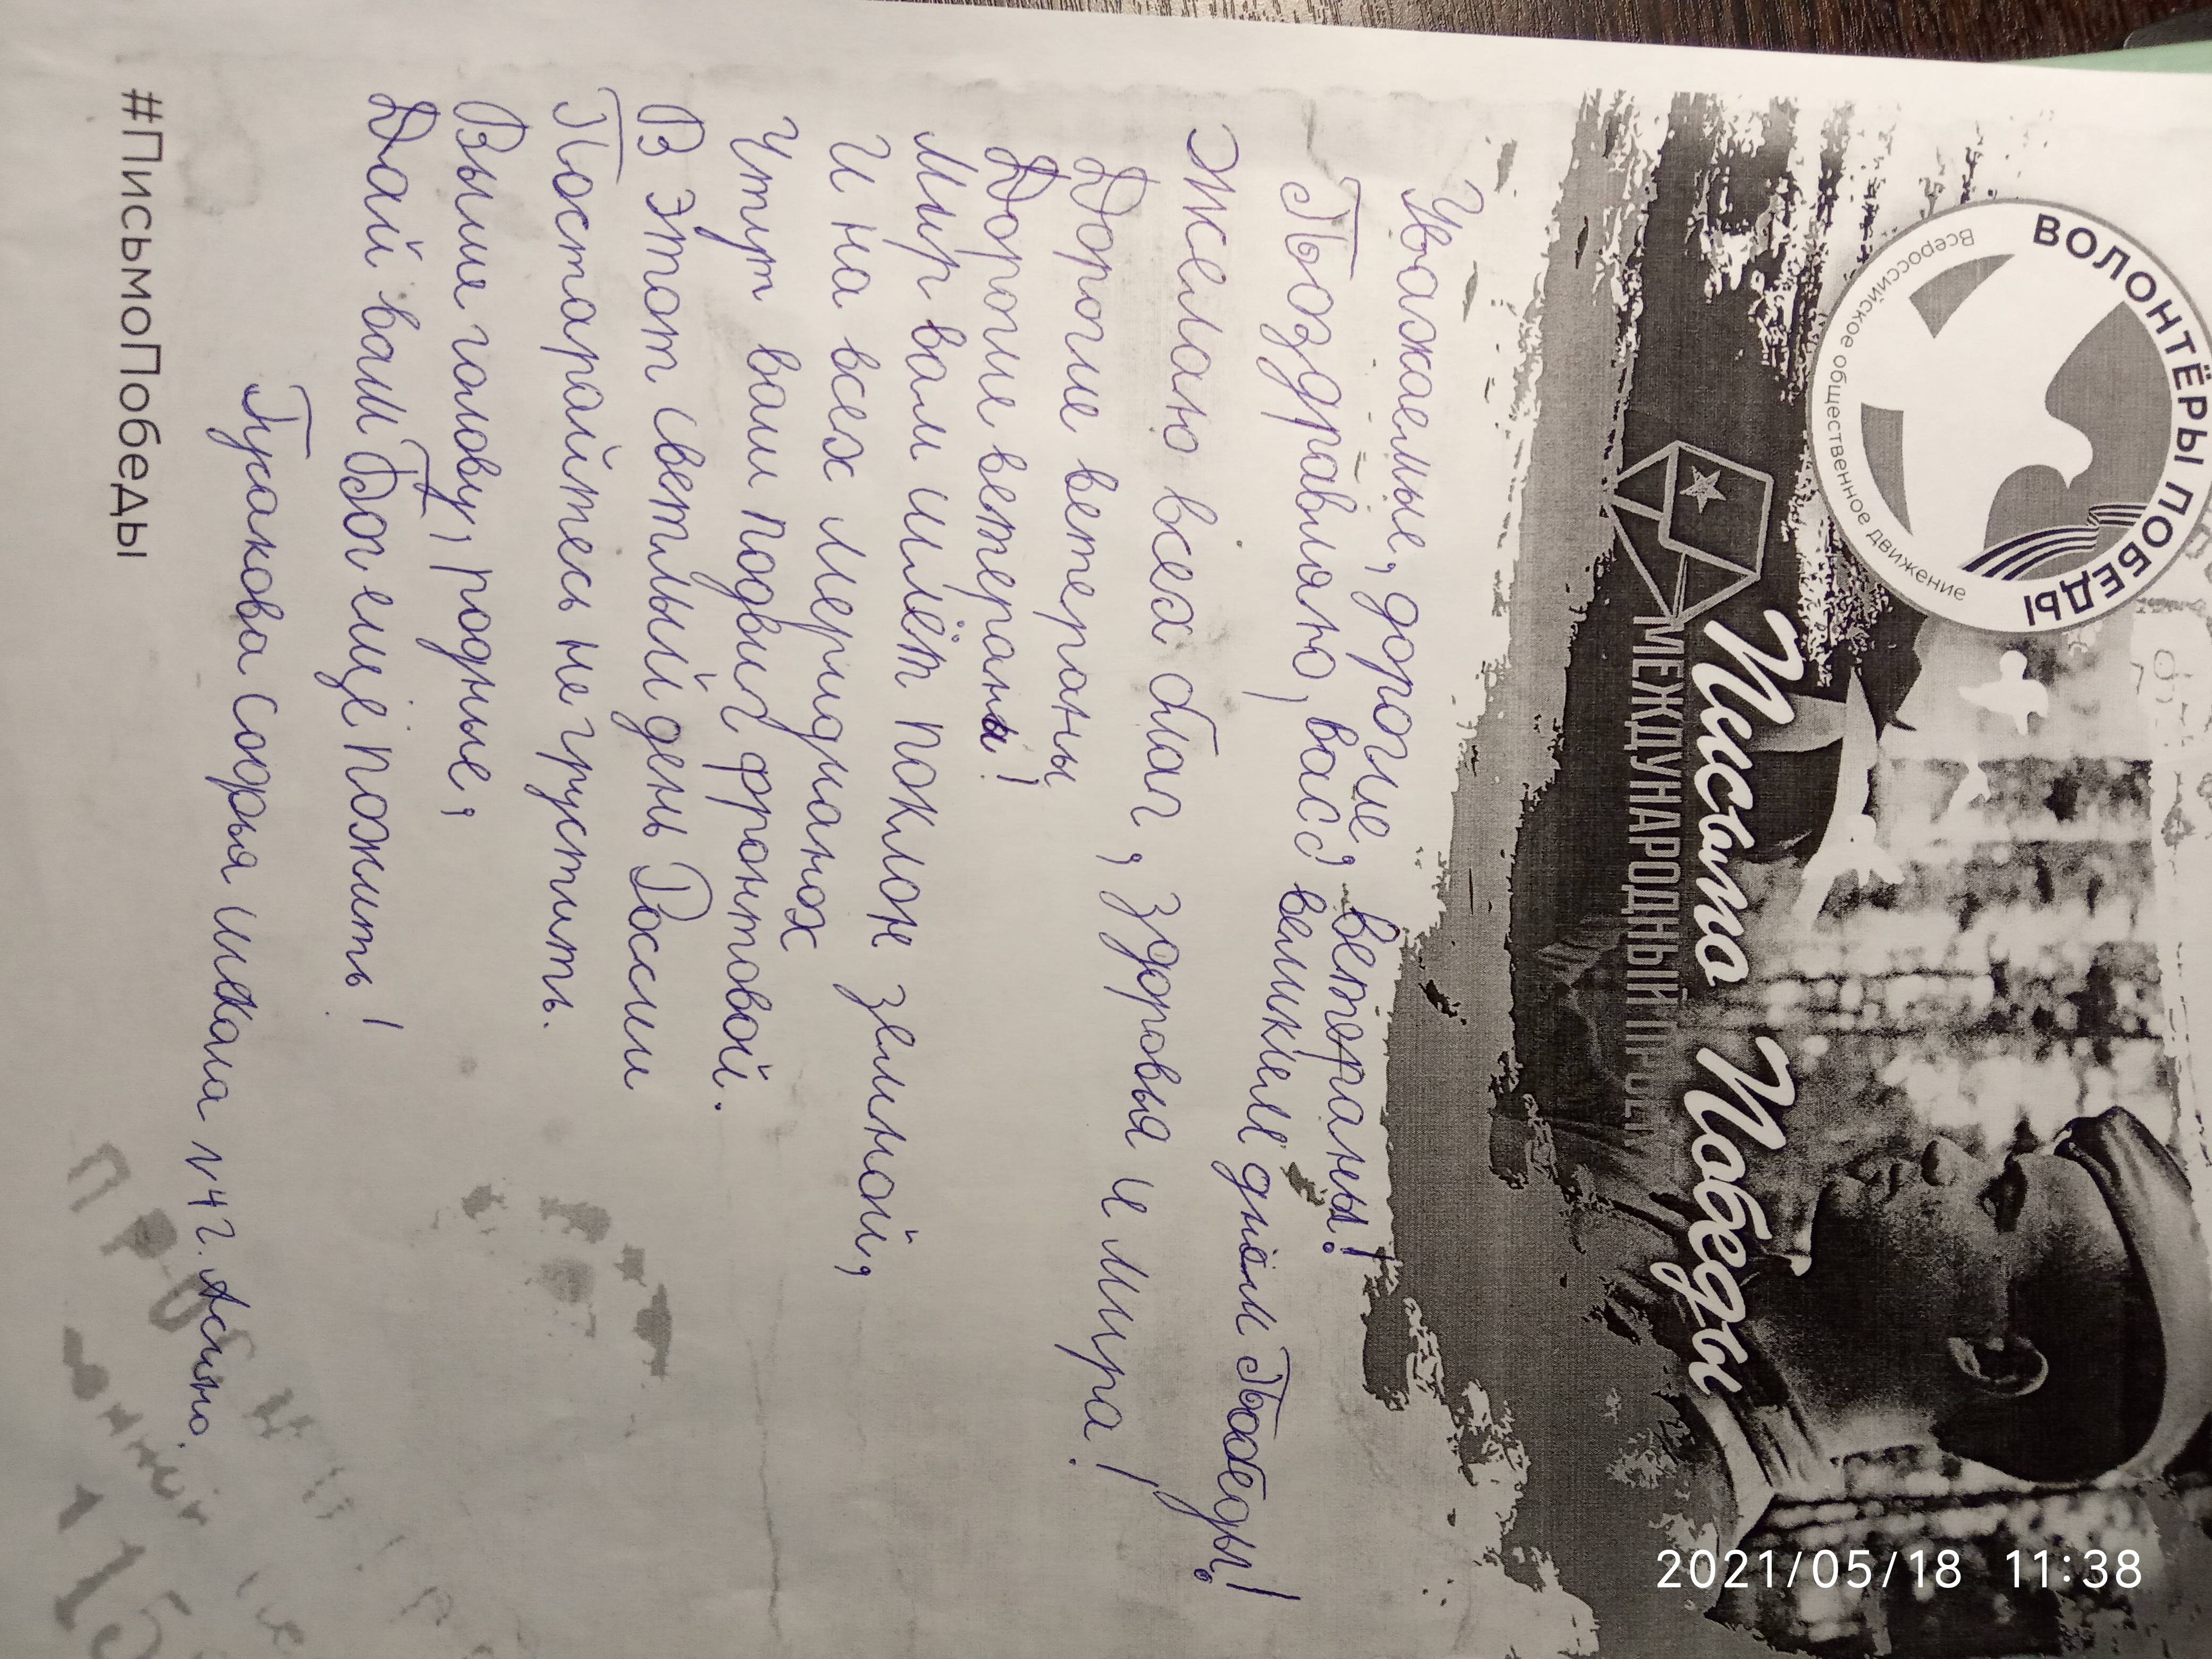 ВОЛОНТЁРЫ ПОБЕДЫ
Всероссийское общественное движение
Письмо Победы
МЕЖДУНАРОДНЫЙ
Уважаемые, дорогие, ветераны!
Поздравляю, вас, великим днём Победы!
Желаю всех благ, здоровья и мира!
Дорогие ветераны
Дорогие ветераны!
Мир вам шлёт поклон земной,
И на всех меридианах
Чтут ваш подвиг фронтовой.
В этот светлый день России
Постарайтесь не грустить.
Выше голову, родные,
Дай вам Бог ещё пожить!
софья школа №4 г. Асино.
#ПисьмоПобеды
2021/05/18 11:38